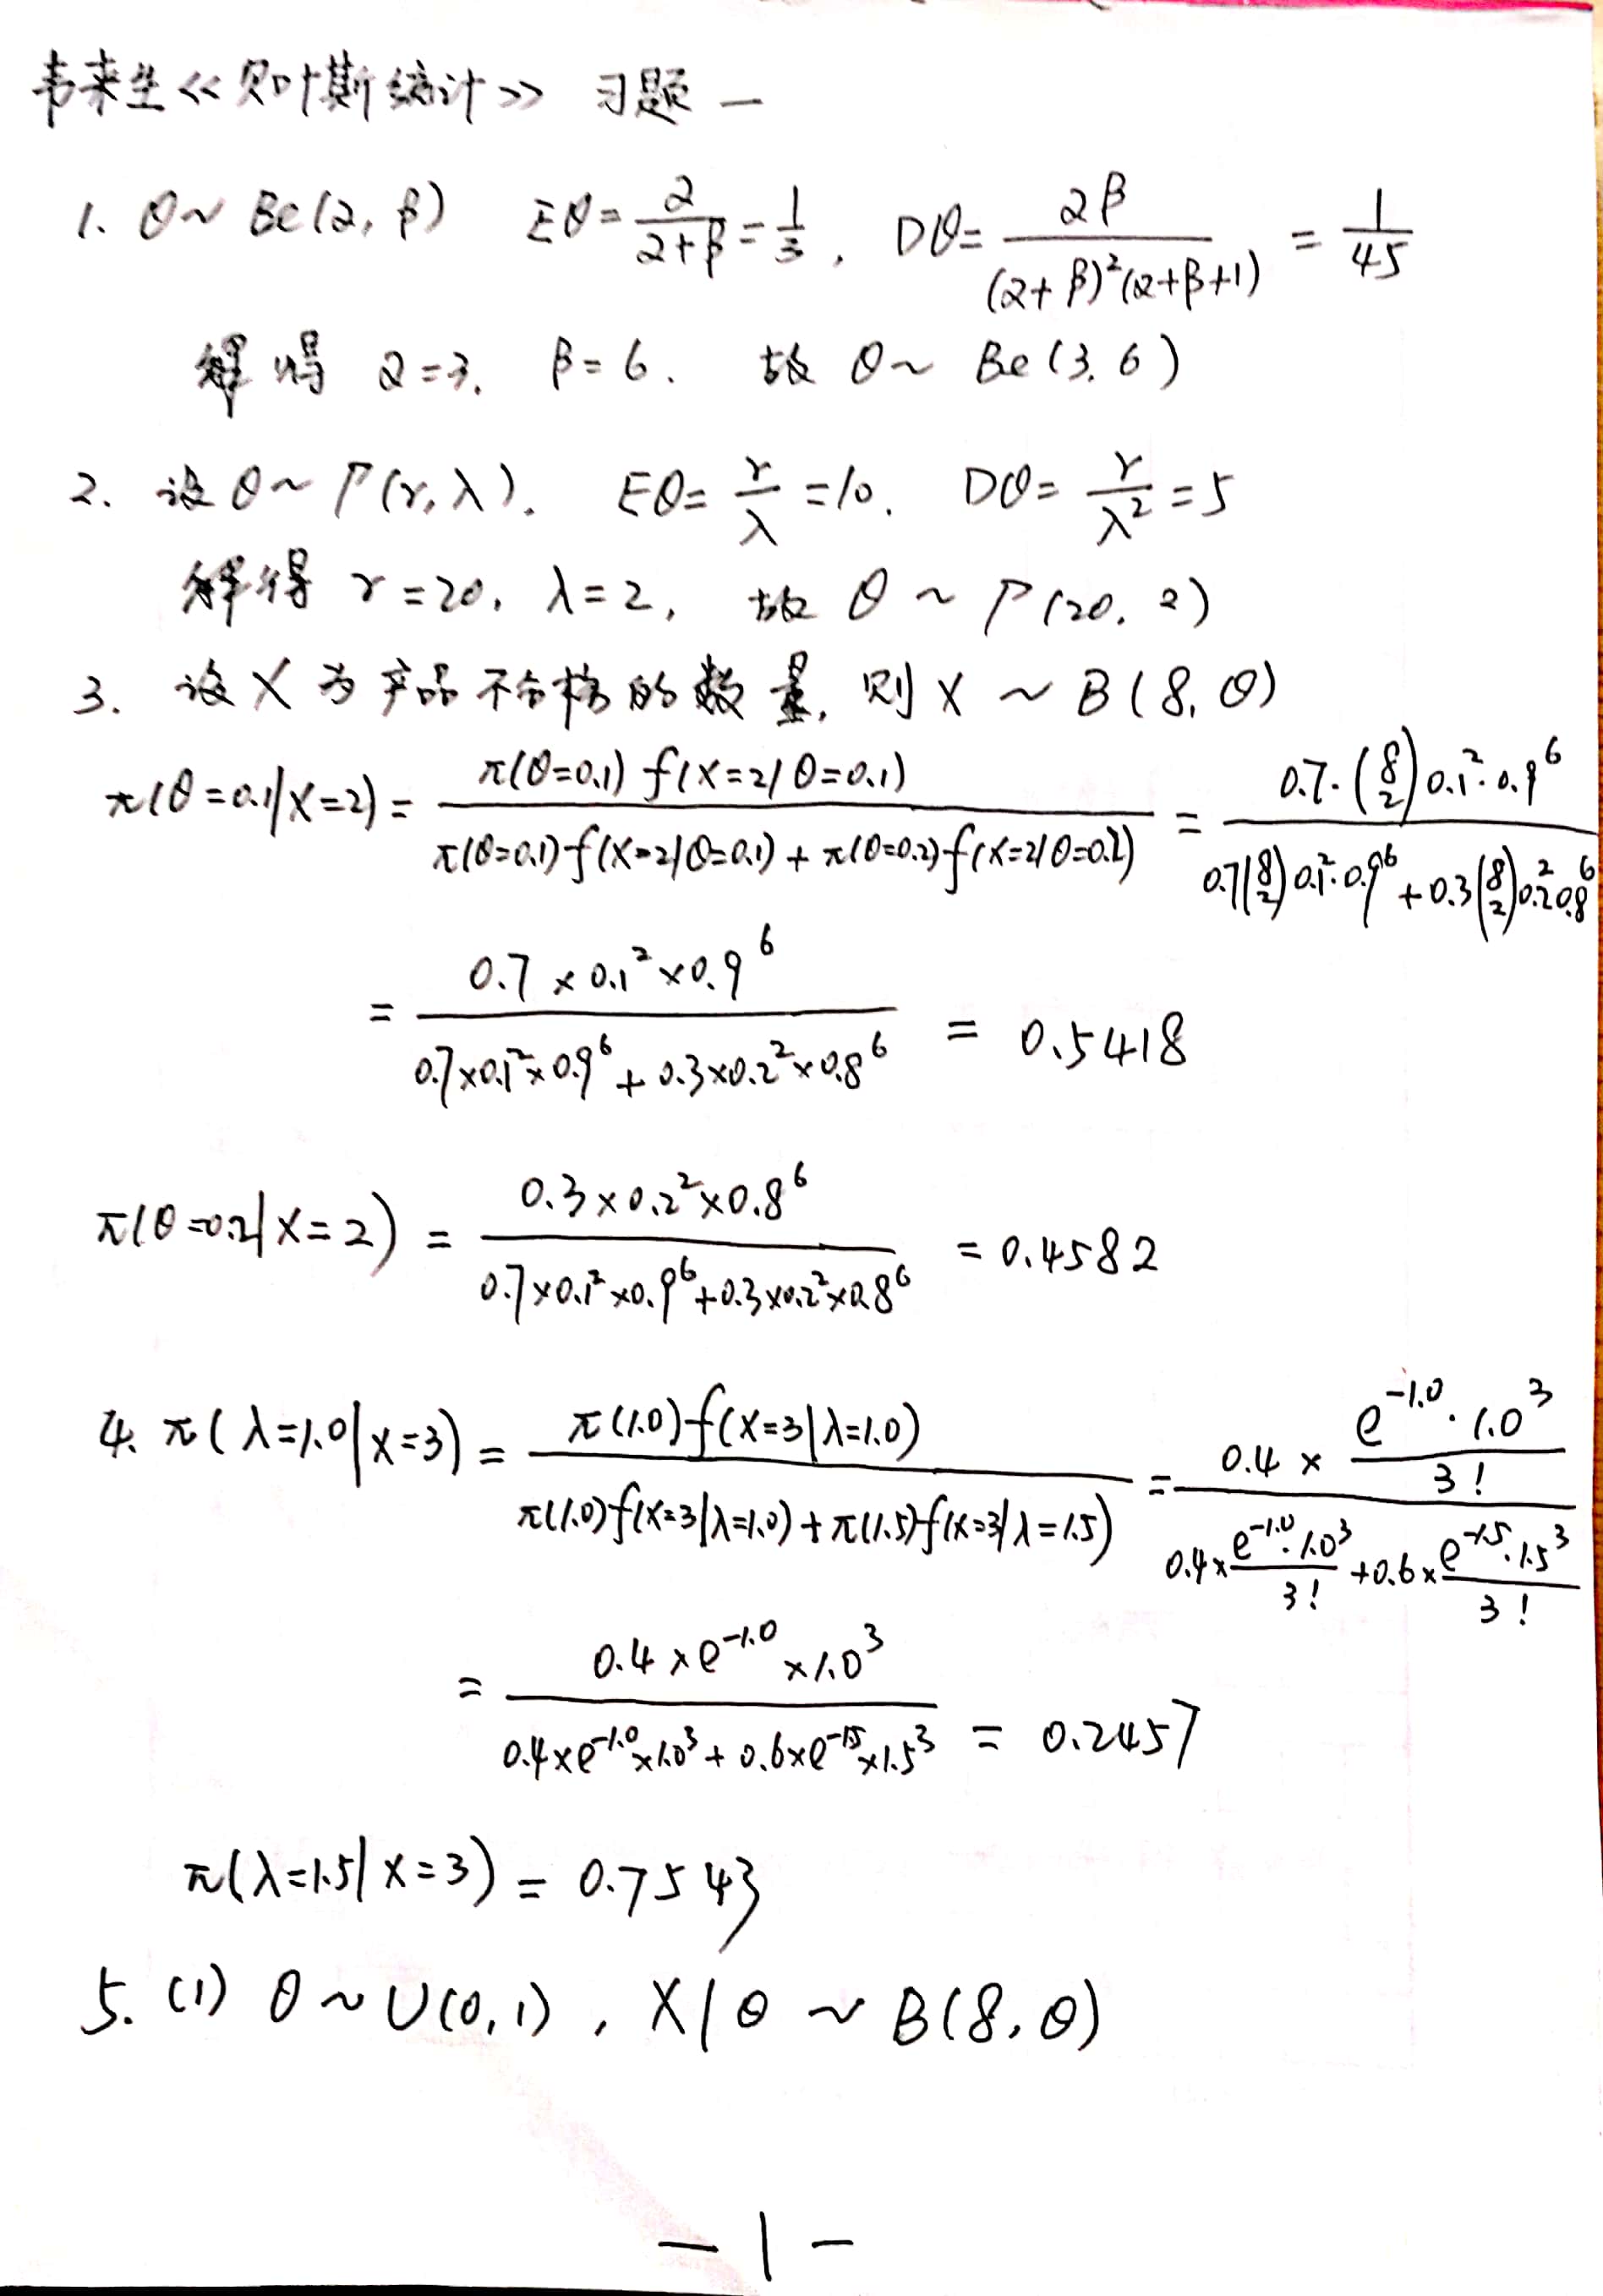 韦来生《贝叶斯统计》 习题一
1. θ~Be(α, β) Eθ=α/(α+β)=1/3, Dθ=αβ/((α+β)²(α+β+1)) = 1/45
解得 α=3, β=6. 故 θ~ Be(3, 6)
2. 设θ~Γ(r, λ). Eθ= r/λ =10. Dθ= r/λ² =5
解得 r=20, λ=2, 故 θ ~ Γ(20, 2)
3. 设X为产品不合格的数量, 则X ~ B(8, θ)
π(θ=0.1|X=2) = π(θ=0.1) f(X=2|θ=0.1) / (π(θ=0.1) f(X=2|θ=0.1) + π(θ=0.2) f(X=2|θ=0.2)) = 0.7·(8 2) 0.1²·0.9⁶ / (0.7(8 2) 0.1²·0.9⁶ + 0.3(8 2) 0.2² 0.8⁶)
= 0.7×0.1²×0.9⁶ / (0.7×0.1²×0.9⁶ + 0.3×0.2²×0.8⁶) = 0.5418
π(θ=0.2|X=2) = 0.3×0.2²×0.8⁶ / (0.7×0.1²×0.9⁶+0.3×0.2²×0.8⁶) = 0.4582
4. π(λ=1.0|X=3) = π(1.0) f(X=3|λ=1.0) / (π(1.0) f(X=3|λ=1.0) + π(1.5) f(X=3|λ=1.5)) = 0.4 × (e^-1.0 · 1.0³ / 3!) / (0.4× (e^-1.0 · 1.0³ / 3!) + 0.6× (e^-1.5 · 1.5³ / 3!))
= 0.4×e^-1.0 ×1.0³ / (0.4×e^-1.0 ×1.0³ + 0.6×e^-1.5 ×1.5³) = 0.2457
π(λ=1.5|X=3) = 0.7543
5. (1) θ~U(0,1), X|θ ~ B(8, θ)
— 1 —